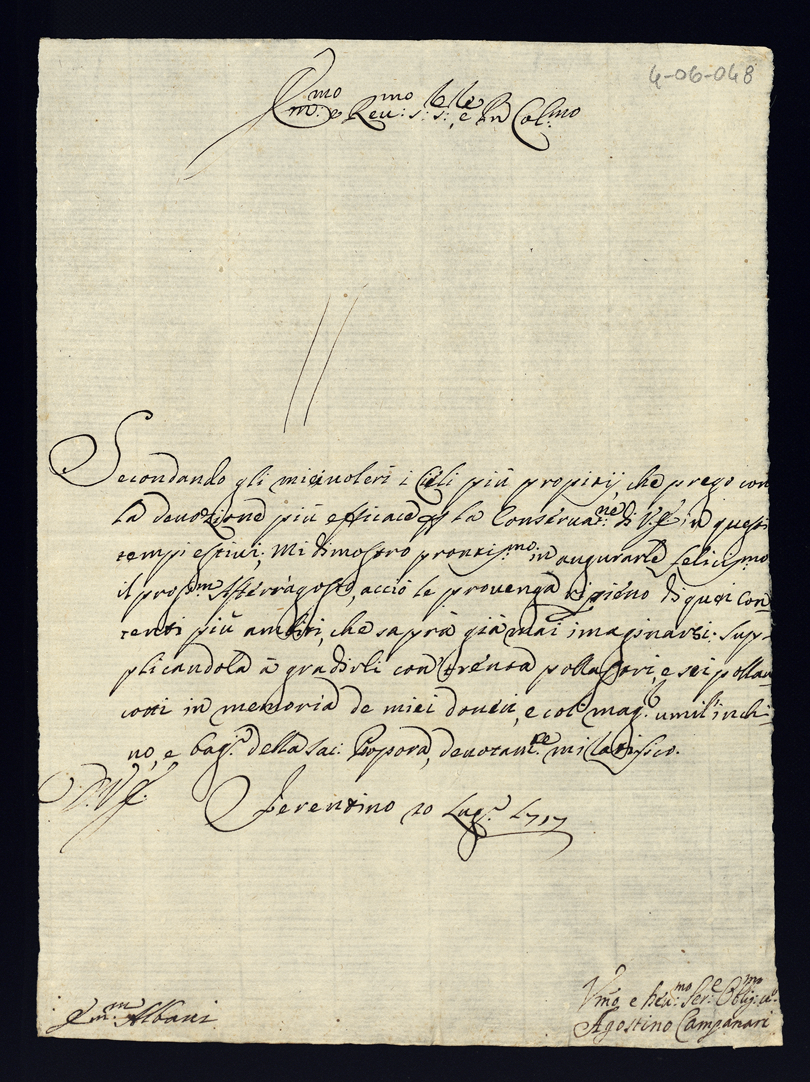 4-06-048
Em:mo e Reu:mo s: s:, e Pn Col:mo
Secondando gli miei uoleri i Cieli più propitij, che prego con
la deuozione più efficace la Conserua:ne di V.E. in questi
tempi estiui; Mi dimostro prontis:mo in augurarle felicis:mo
il pross:mo Aferragosto, acciò le prouenga ripieno di quei con=
tenti più ambiti, che saprà già mai imaginarsi. Sup=
plicandola à gradirli con trenta pollastri, e sei pollan=
cotti in memoria de miei doueri, e col mag: umil'inchi=
no, e bag: della Sac: Porpora, deuotam:te mi ratifico.
D. V. E.
Ferentino 20 Lug: 1717
Em: Albani
Um:o e Reu:mo Ser:e Oblig:mo
Agostino Campanari